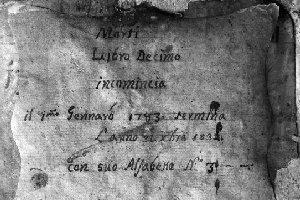 Morti
Libro Decimo
incomincia
il pmo Gennaro 1783. termina
L'anno
con suo Alfabeto No 3